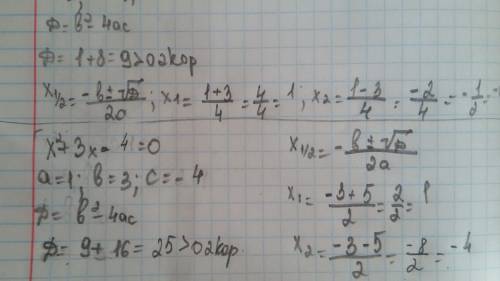 D = b² - 4ac
D = 1 + 8 = 9 > 0 2 кор
x₁/₂ = (-b ± √D)/2a ; x₁ = (1+3)/4 = 4/4 = 1 ; x₂ = (1-3)/4 = -2/4 = -1/2 =
x² + 3x - 4 = 0
a = 1; b = 3; c = -4
D = b² - 4ac
D = 9 + 16 = 25 > 0 2 кор.
x₁/₂ = (-b ± √D)/2a
x₁ = (-3+5)/2 = 2/2 = 1
x₂ = (-3-5)/2 = -8/2 = -4